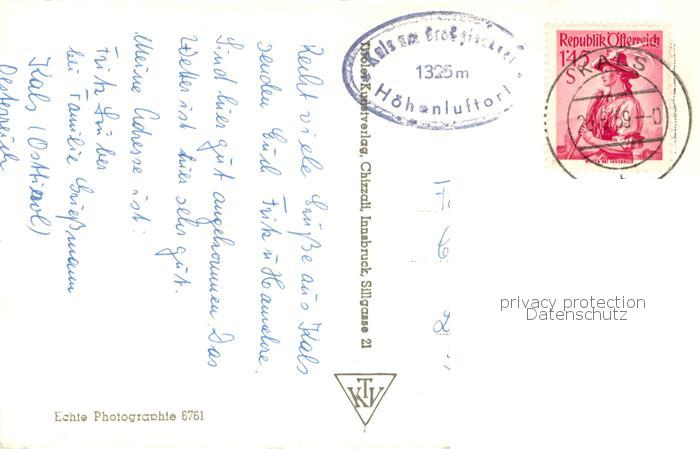 Recht viele Grüße aus Kals
senden Euch Fritz u Hannelore.
Sind hier gut angekommen. Das
Wetter ist hier sehr gut.
Meine Adresse ist:
Fritz
bei Familie Grießmann
Kals (Osttirol)
Oesterreich
Echte Photographie 6761
Tiroler Kunstverlag, Chizzali, Innsbruck, Sillgasse 21
TKV
Kals am Großglockner
1325m
Höhenluftort
Republik Österreich
1'45
S
KALS
privacy protection
Datenschutz